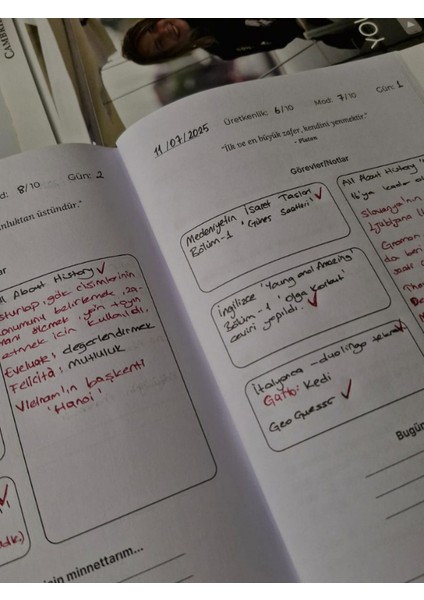 CAMBRI
YO
d: 8/10
Gün: 2
nluktan üstündür."
ar
ll About History ✓
sturlap, gök cisimlerinin
konumunu belirlemek, za-
manı ölçmek, yön tayin
etmek için kullanıldı.
Evaluate: değerlendirmek
Felicità: mutluluk
Vietnam'ın başkenti
'Hanoi'
için minnettarım...
11/07/2025
Üretkenlik: 6/10
Mod: 7/10
Gün: 1
"İlk ve en büyük zafer, kendini yenmektir."
- Platon
Görevler/Notlar
Medeniyetin İşaret Taşları ✓
Bölüm-1 'Güneş Saatleri'
İngilizce 'Young and Amazing'
Bölüm-1 'Olga Korbut'
çeviri yapıldı. ✓
İtalyanca - duolingo
Gatto: Kedi
GeoGuessr ✓
All About History
Slovenya'nın
Ljubljana
da
Bugün